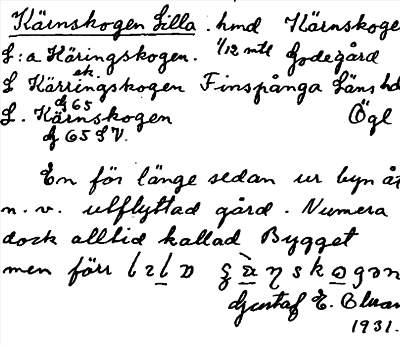 Kärnskogen Lilla. hmd Kärnskoge
L:a Käringskogen. 1/12 mtl Godegård
ek.
L Kärringskogen Finspånga Läns hd
dJ 65
L. Kärnskogen Ögl
dJ 65 SV.
En för länge sedan ur byn åt
n.v. utflyttad gård. Numera
dock alltid kallad Bygget
men förr
Gustaf E.
1931.